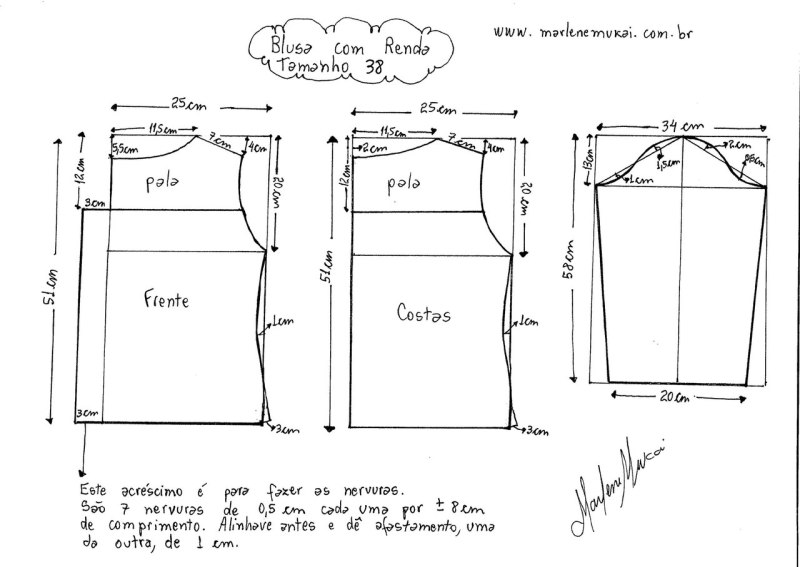 www. marlenemukai.com.br
Blusa com Renda
Tamanho 38
25cm
11,5cm
7cm
5,5cm
4cm
12cm
20cm
pala
3cm
51cm
Frente
1cm
3cm
3cm
25cm
11,5cm
7cm
2cm
4cm
12cm
20cm
pala
51cm
Costas
1cm
3cm
34 cm
13cm
2cm
1,5cm
1cm
58cm
20cm
Este acréscimo é para fazer as nervuras.
São 7 nervuras de 0,5 cm cada uma por ± 8cm
de comprimento. Alinhave antes e dê afastamento, uma
da outra, de 1 cm.
Marlene Mukai